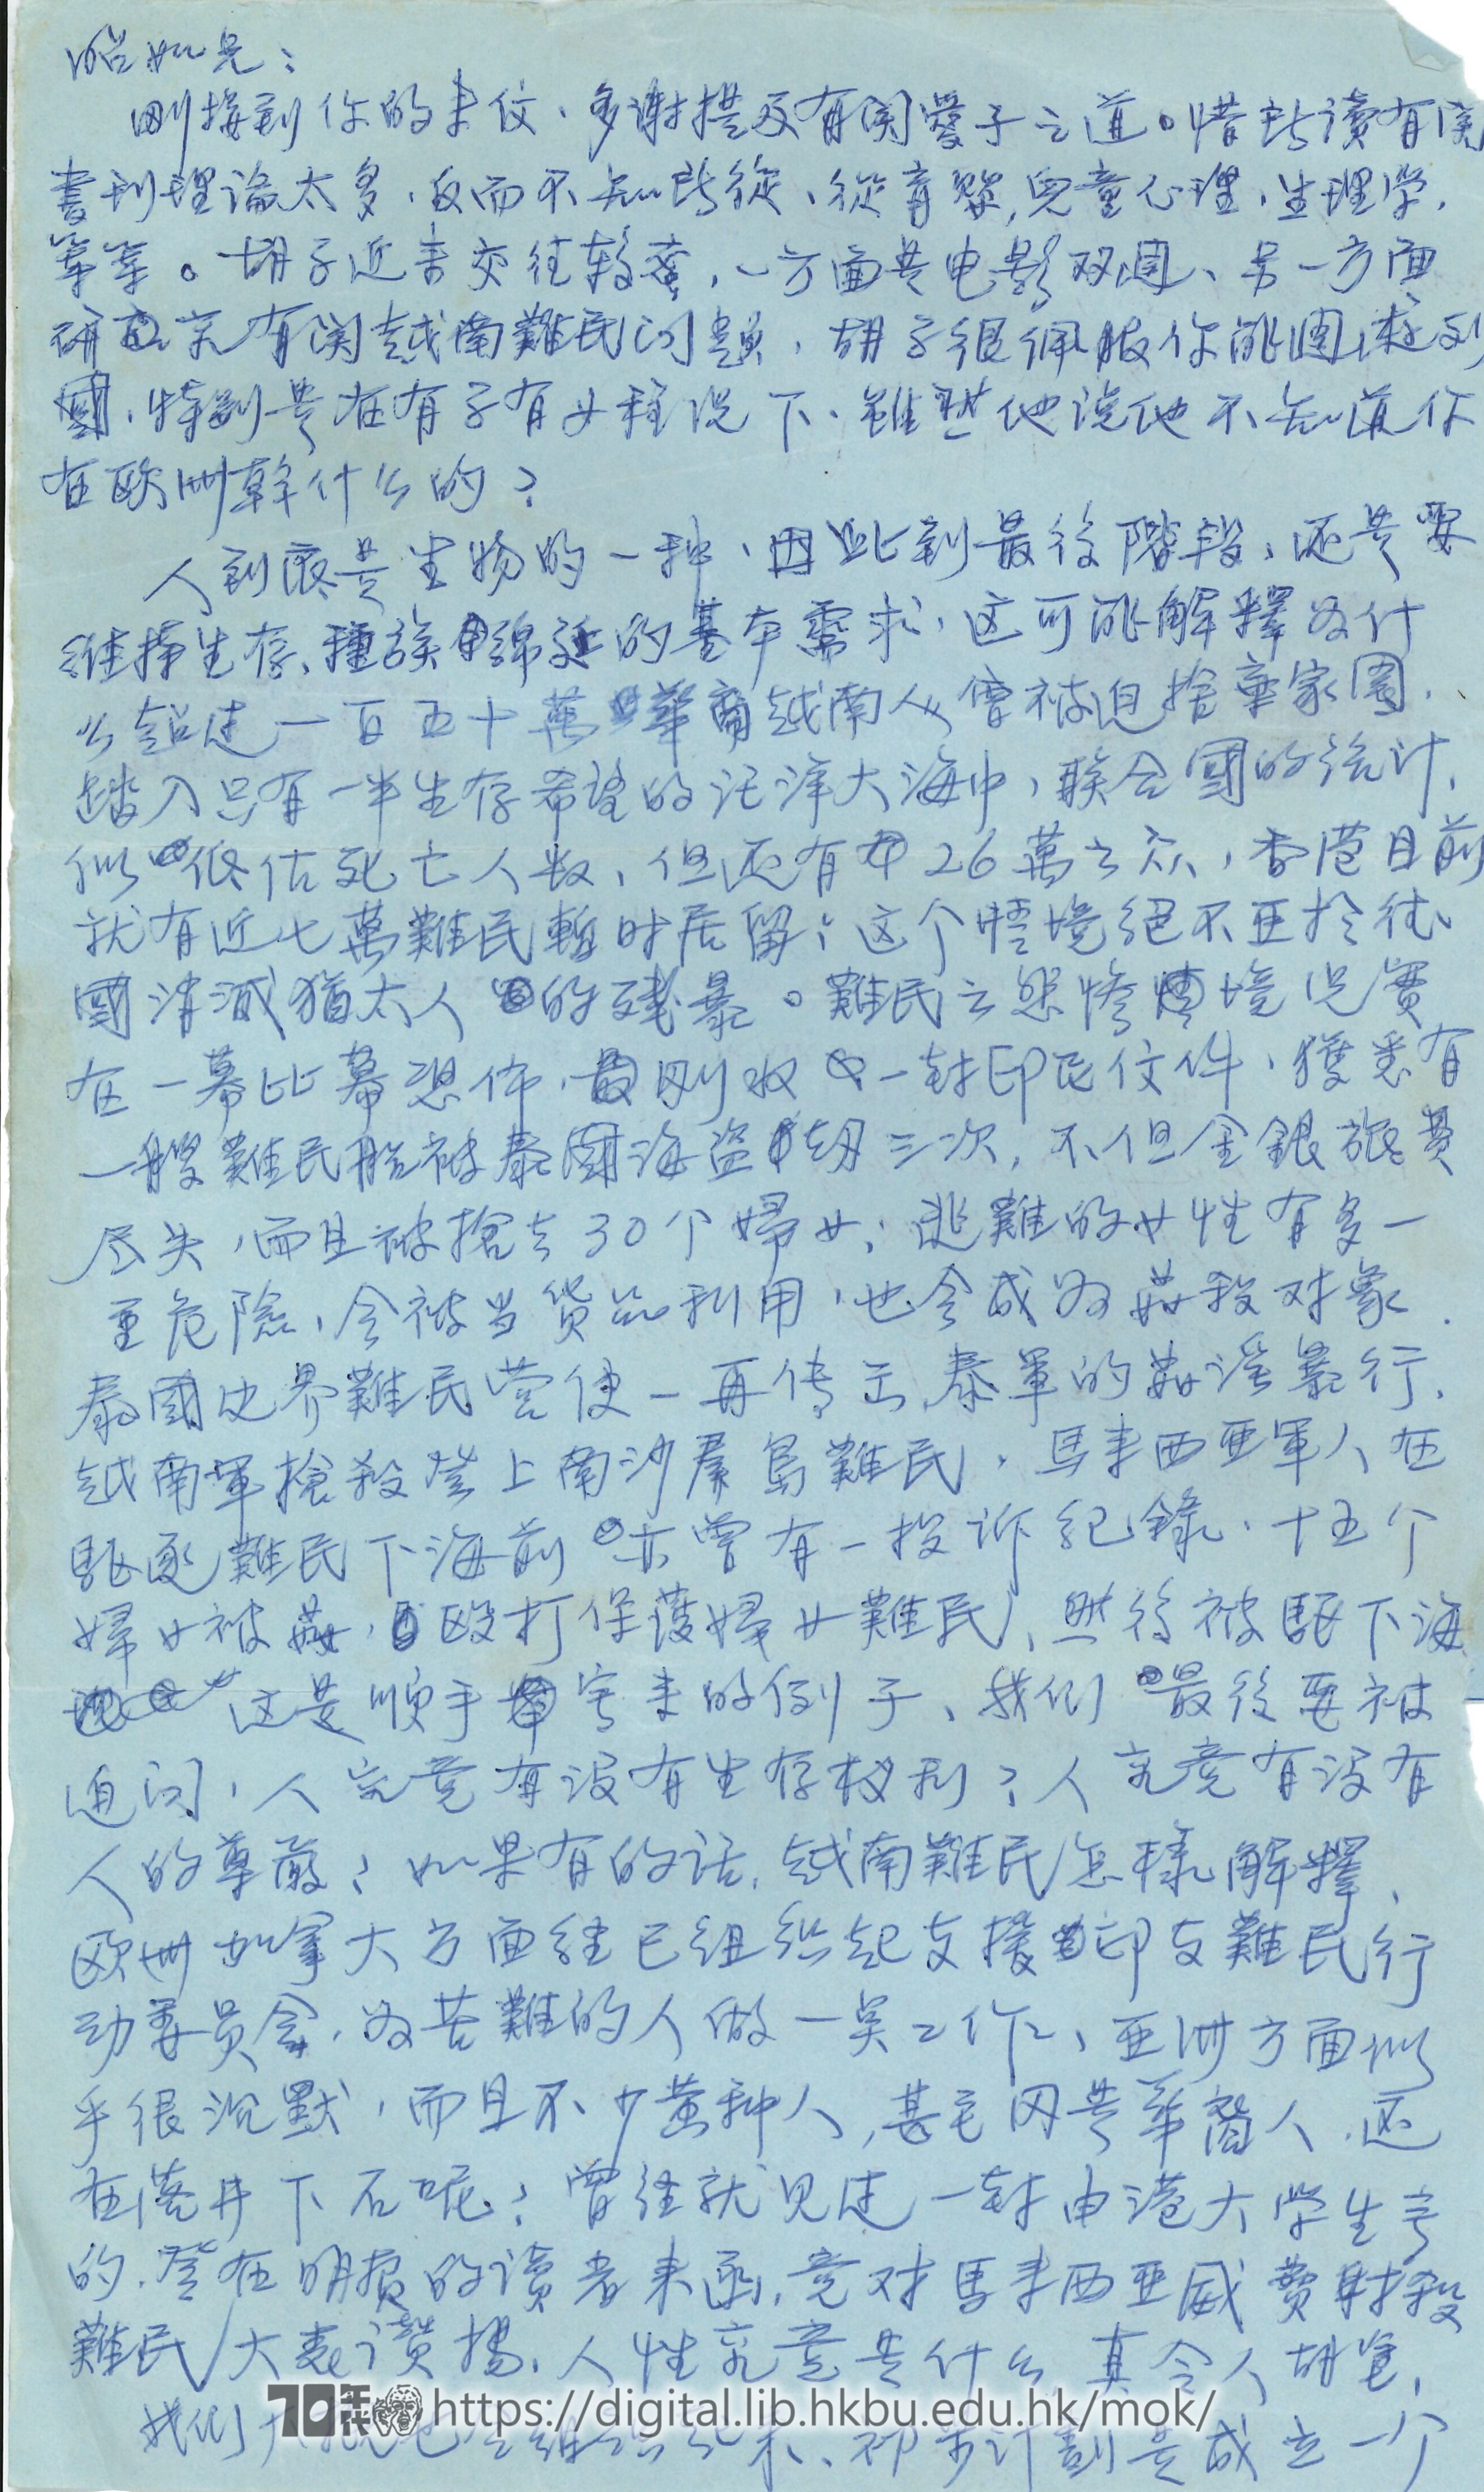 昭如兄：
刚接到你的来信、多謝提及有関愛子之道。惜我读有関
書刊理論太多，反而不知所從、從育嬰，兒童心理，生理学，
等等。胡子近来交往較蜜，一方面是电影双週、另一方面
研究有関越南難民问题，胡子很佩服你能週遊列
國，特别是在有子有女程况下、雖然他説他不知道你
在欧洲幹什么的？
人到底是生物的一种、因此到最後階段，还是要
維持生存、種族綿延的基本需求，这可能解釋为什
么超过一百五十萬華裔越南人會被迫捨棄家園，
踏入只有一半生存希望的汪洋大海中，联合國的統计，
似低估死亡人数，但还有26萬之众，香港目前
就有近七萬難民暫时居留；这个情境絕不亚於徳
國消滅猶太人的残暴。難民之悲惨境况實
在一幕比幕恐佈，最刚收一封印尼信件，獲悉有
一艘難民船被泰國海盗劫三次，不但金銀旅費
尽失，而且被搶去30个婦女；逃難的女性有多一
重危險，会被当货品利用，也会成为姦殺对象．
泰國边界難民营便一再传出泰軍的姦淫暴行，
越南軍搶殺登上南沙羣島難民，馬来西亚軍人在
駆逐難民下海前亦曾有一投诉纪錄，十五个
婦女被姦，殴打保護婦女難民，然後被駆下海
这是順手写来的例子，我们最後要被
迫问，人究竟有没有生存权利？人究竟有没有
人的尊嚴？如果有的话，越南難民怎樣解釋，
欧洲加拿大方面经已组织起支援印支難民行
动委员会，为苦難的人做一点工作、亚洲方面似
乎很沉默，而且不少黄种人，甚至同是華裔人，还
在落井下石呢？曾经就见过一封由港大学生写
的，登在明报的读者来函，竟对馬来西亚威費射殺
難民大表讚揚，人性究竟是什么，真令人胡塗，
我们 初步计劃是成立一个
70年代 https://digital.lib.hkbu.edu.hk/mok/